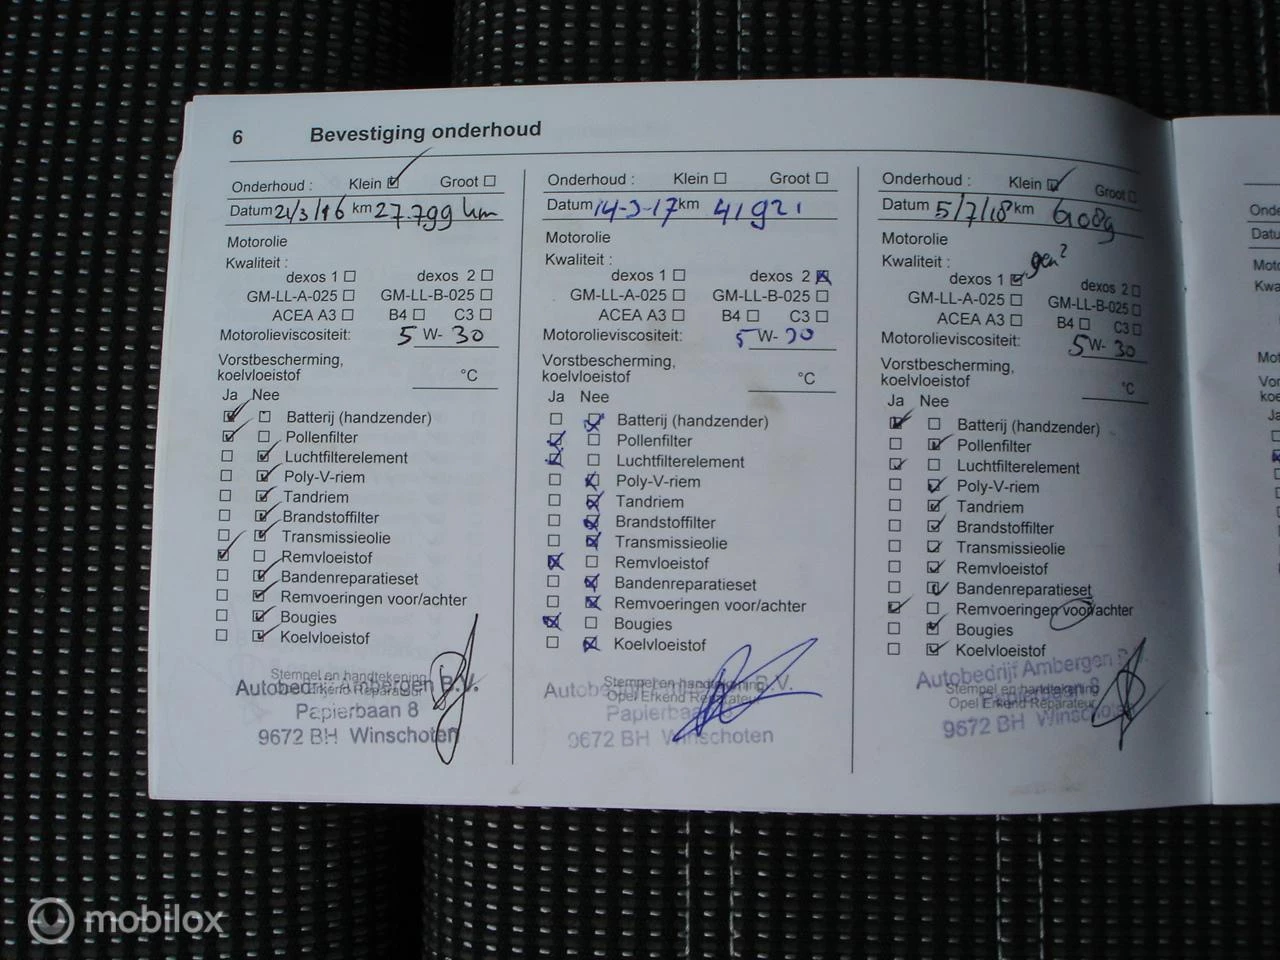 6 Bevestiging onderhoud
Onderhoud : Klein Groot
Datum 21/3/16 km 27.799 km
Motorolie
Kwaliteit :
dexos 1 dexos 2
GM-LL-A-025 GM-LL-B-025
ACEA A3 B4 C3
Motorolieviscositeit: 5 W- 30
Vorstbescherming,
koelvloeistof °C
Ja Nee
Batterij (handzender)
Pollenfilter
Luchtfilterelement
Poly-V-riem
Tandriem
Brandstoffilter
Transmissieolie
Remvloeistof
Bandenreparatieset
Remvoeringen voor/achter
Bougies
Koelvloeistof
Stempel en handtekening
Opel Erkend Reparateur
Autobedrijf Ambergen B.V.
Papierbaan 8
9672 BH Winschoten
Onderhoud : Klein Groot
Datum 14-3-17 km 41921
Motorolie
Kwaliteit :
dexos 1 dexos 2
GM-LL-A-025 GM-LL-B-025
ACEA A3 B4 C3
Motorolieviscositeit: 5 W- 30
Vorstbescherming,
koelvloeistof °C
Ja Nee
Batterij (handzender)
Pollenfilter
Luchtfilterelement
Poly-V-riem
Tandriem
Brandstoffilter
Transmissieolie
Remvloeistof
Bandenreparatieset
Remvoeringen voor/achter
Bougies
Koelvloeistof
Stempel en handtekening
Opel Erkend Reparateur
Autobedrijf Ambergen B.V.
Papierbaan 8
9672 BH Winschoten
Onderhoud : Klein Groot
Datum 5/7/18 km
Motorolie
Kwaliteit : gen2
dexos 1 dexos 2
GM-LL-A-025 GM-LL-B-025
ACEA A3 B4 C3
Motorolieviscositeit: 5 W- 30
Vorstbescherming,
koelvloeistof °C
Ja Nee
Batterij (handzender)
Pollenfilter
Luchtfilterelement
Poly-V-riem
Tandriem
Brandstoffilter
Transmissieolie
Remvloeistof
Bandenreparatieset
Remvoeringen voor/achter
Bougies
Koelvloeistof
Autobedrijf Ambergen B.V.
Stempel en handtekening
Papierbaan 8
Opel Erkend Reparateur
9672 BH Winschoten
mobilox